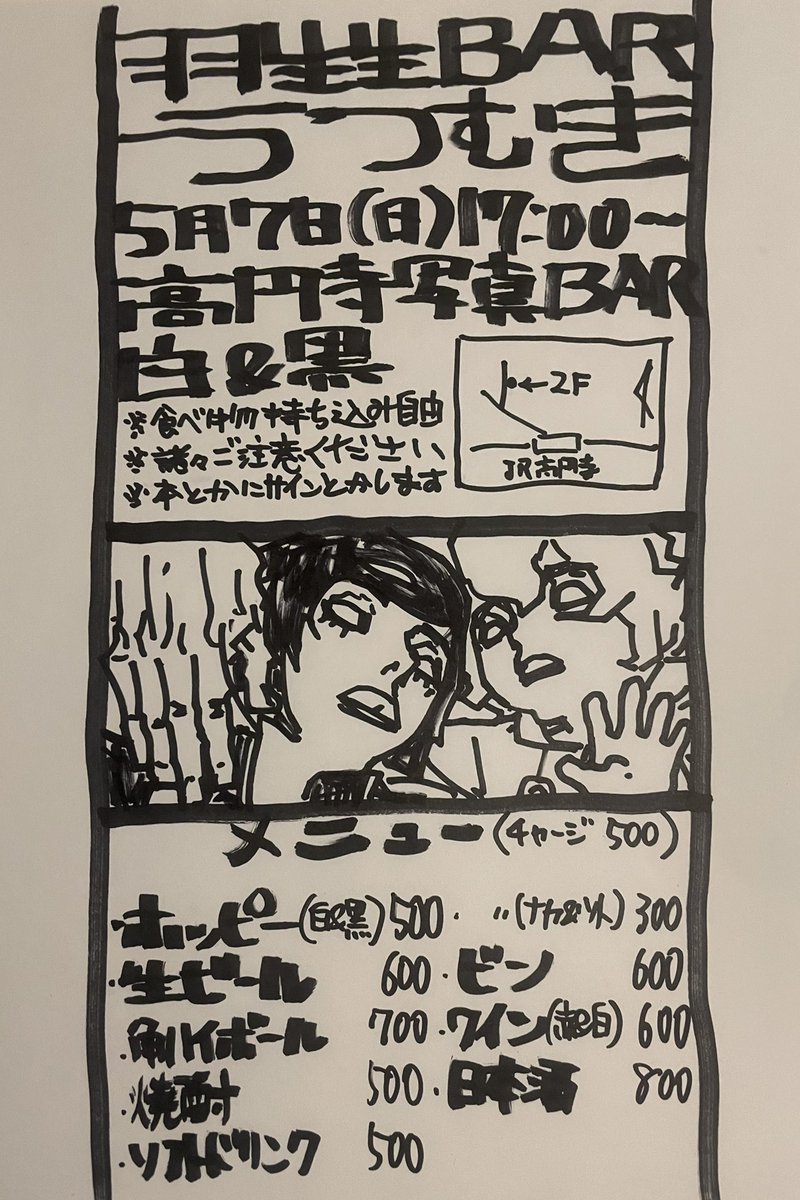 羽生生BAR
うつむき
5月7日(日)17:00〜
高円寺写真BAR
白&黒
※食べ物持ち込み自由
※諸々ご注意ください
※本とかにサインとかします
←2F
JR高円寺
メニュー(チャージ 500)
・ホッピー(白&黒) 500 ・〃(ナカorソト) 300
・生ビール 600 ・ビン 600
・角ハイボール 700 ・ワイン(赤&白) 600
・焼酎 500 ・日本酒 800
・ソフトドリンク 500